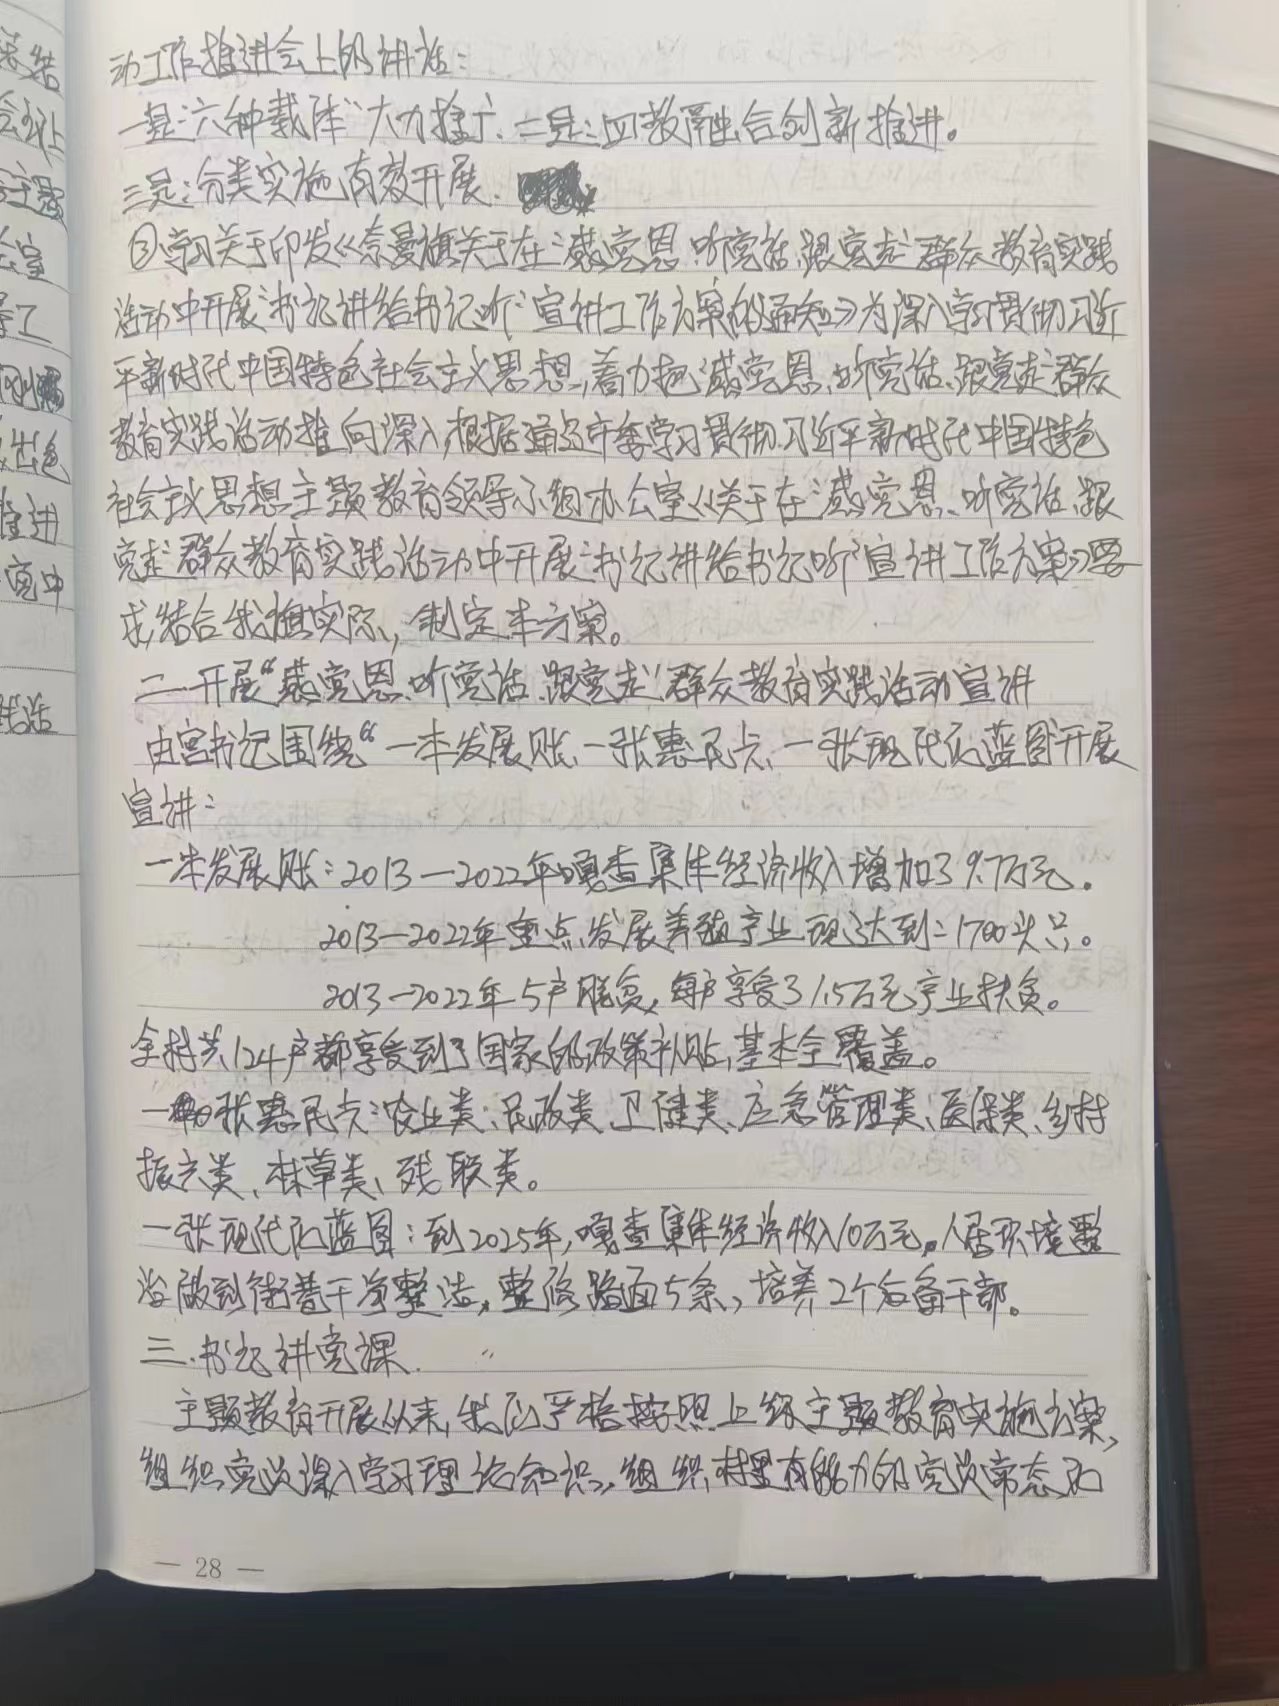 动工作推进会上的讲话：
一是："六种载体"大力推广、二是：四教融合创新推进。
三是：分类实施有效开展.
③学习关于印发《奈曼旗关于在"感党恩、听党话、跟党走"群众教育实践
活动中开展"书记讲给书记听"宣讲工作方案的通知》为深入学习贯彻习近
平新时代中国特色社会主义思想，着力把"感党恩、听党话、跟党走"群众
教育实践活动推向深入，根据通辽市委学习贯彻习近平新时代中国特色
社会主义思想主题教育领导小组办公室《关于在"感党恩、听党话、跟
党走"群众教育实践活动中开展"书记讲给书记听"宣讲工作方案》要
求，结合我旗实际，制定本方案。
二.开展"感党恩、听党话、跟党走"群众教育实践活动宣讲
由宫书记围绕"一本发展账、一张惠民卡、一张现代化蓝图开展
宣讲：
一本发展账：2013—2022年嘎查集体经济收入增加了9.7万元.
2013—2022年重点发展养殖产业现达到：1700头只。
2013—2022年5户脱贫，每户享受了1.5万元产业扶贫。
全村共124户都享受到了国家的政策补贴，基本全覆盖。
一张惠民卡：农业类、民政类、卫健类、应急管理类、医保类、乡村
振兴类、林草类、残联类。
一张现代化蓝图：到2025年，嘎查集体经济收入10万元。人居环境整
治做到街巷干净整洁，整修路面5条，培养2个后备干部。
三.书记讲党课.
主题教育开展以来，我们严格按照上级主题教育实施方案，
组织党员深入学习理论知识，组织村里有能力的党员常态化
— 28 —